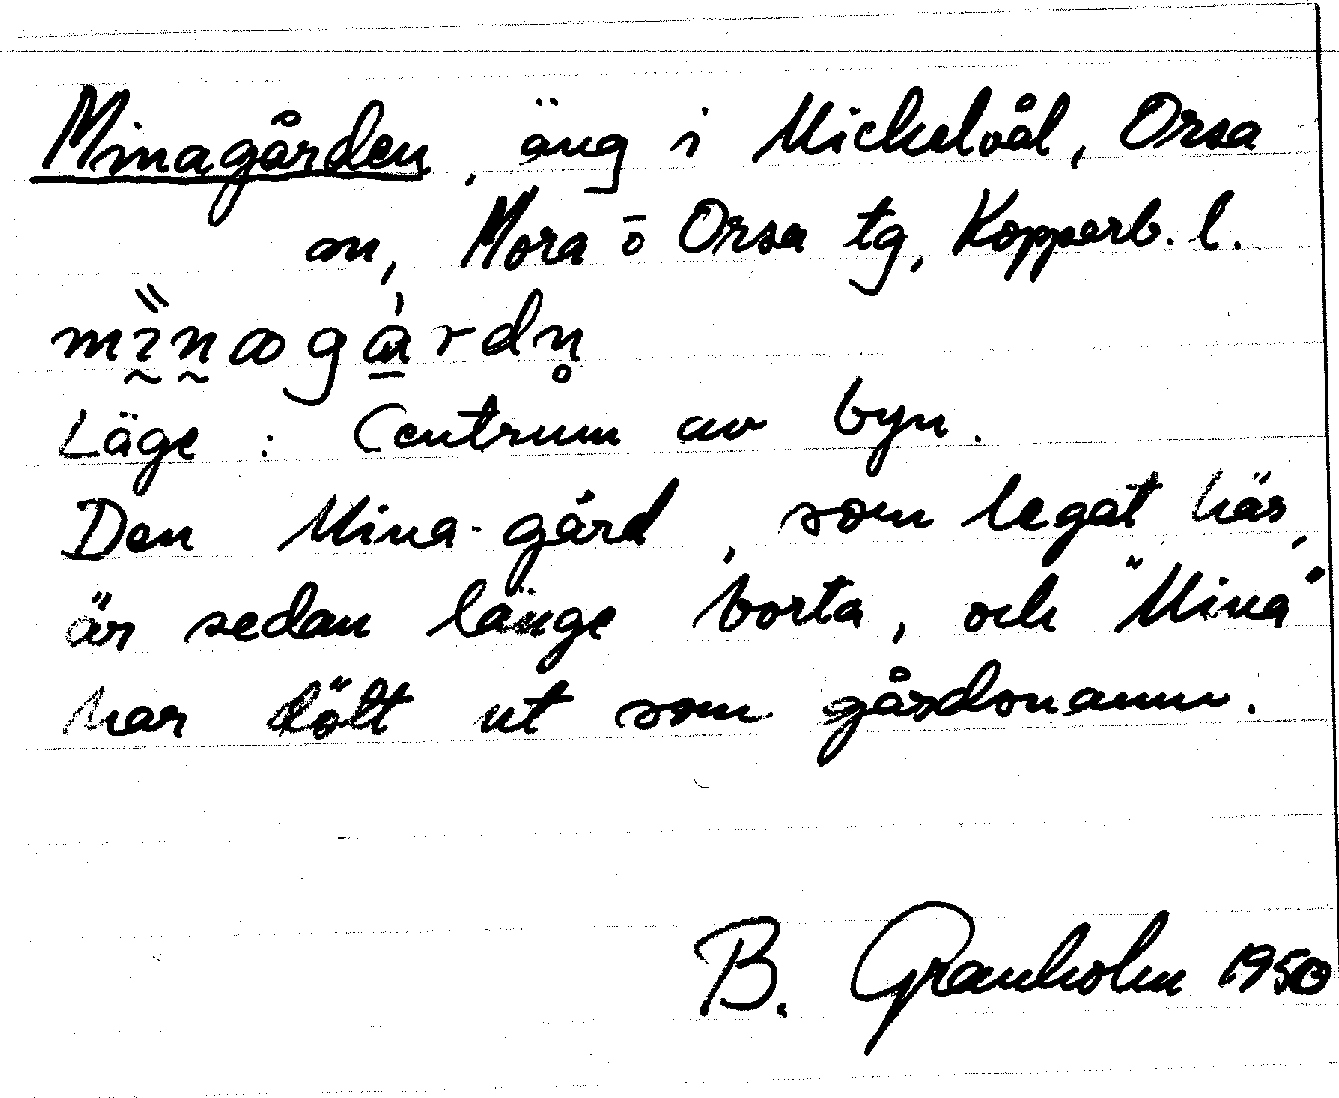 Minagården, äng i Mickelvål, Orsa
sn, Mora o Orsa tg, Kopparb. l.
Läge : Centrum av byn.
Den Mina-gård, som legat här,
är sedan länge borta, och "Mina"
har dött ut som gårdsnamn.
B. Granholm 1950